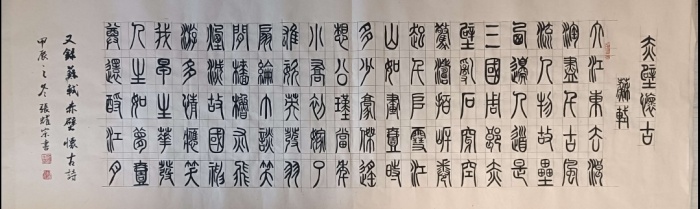 赤壁懷古
蘇軾
大江東去浪
淘盡千古風
流人物故壘
西邊人道是
三國周郎赤
壁亂石穿空
驚濤拍岸捲
起千堆雪江
山如畫壹時
多少豪傑遙
想公瑾當年
小喬初嫁了
雄姿英發羽
扇綸巾談笑
間檣櫓灰飛
煙滅故國神
遊多情應笑
我早生華發
人生如夢壹
尊還酹江月
又錄蘇軾赤壁懷古詩
甲辰之冬張耀宗書